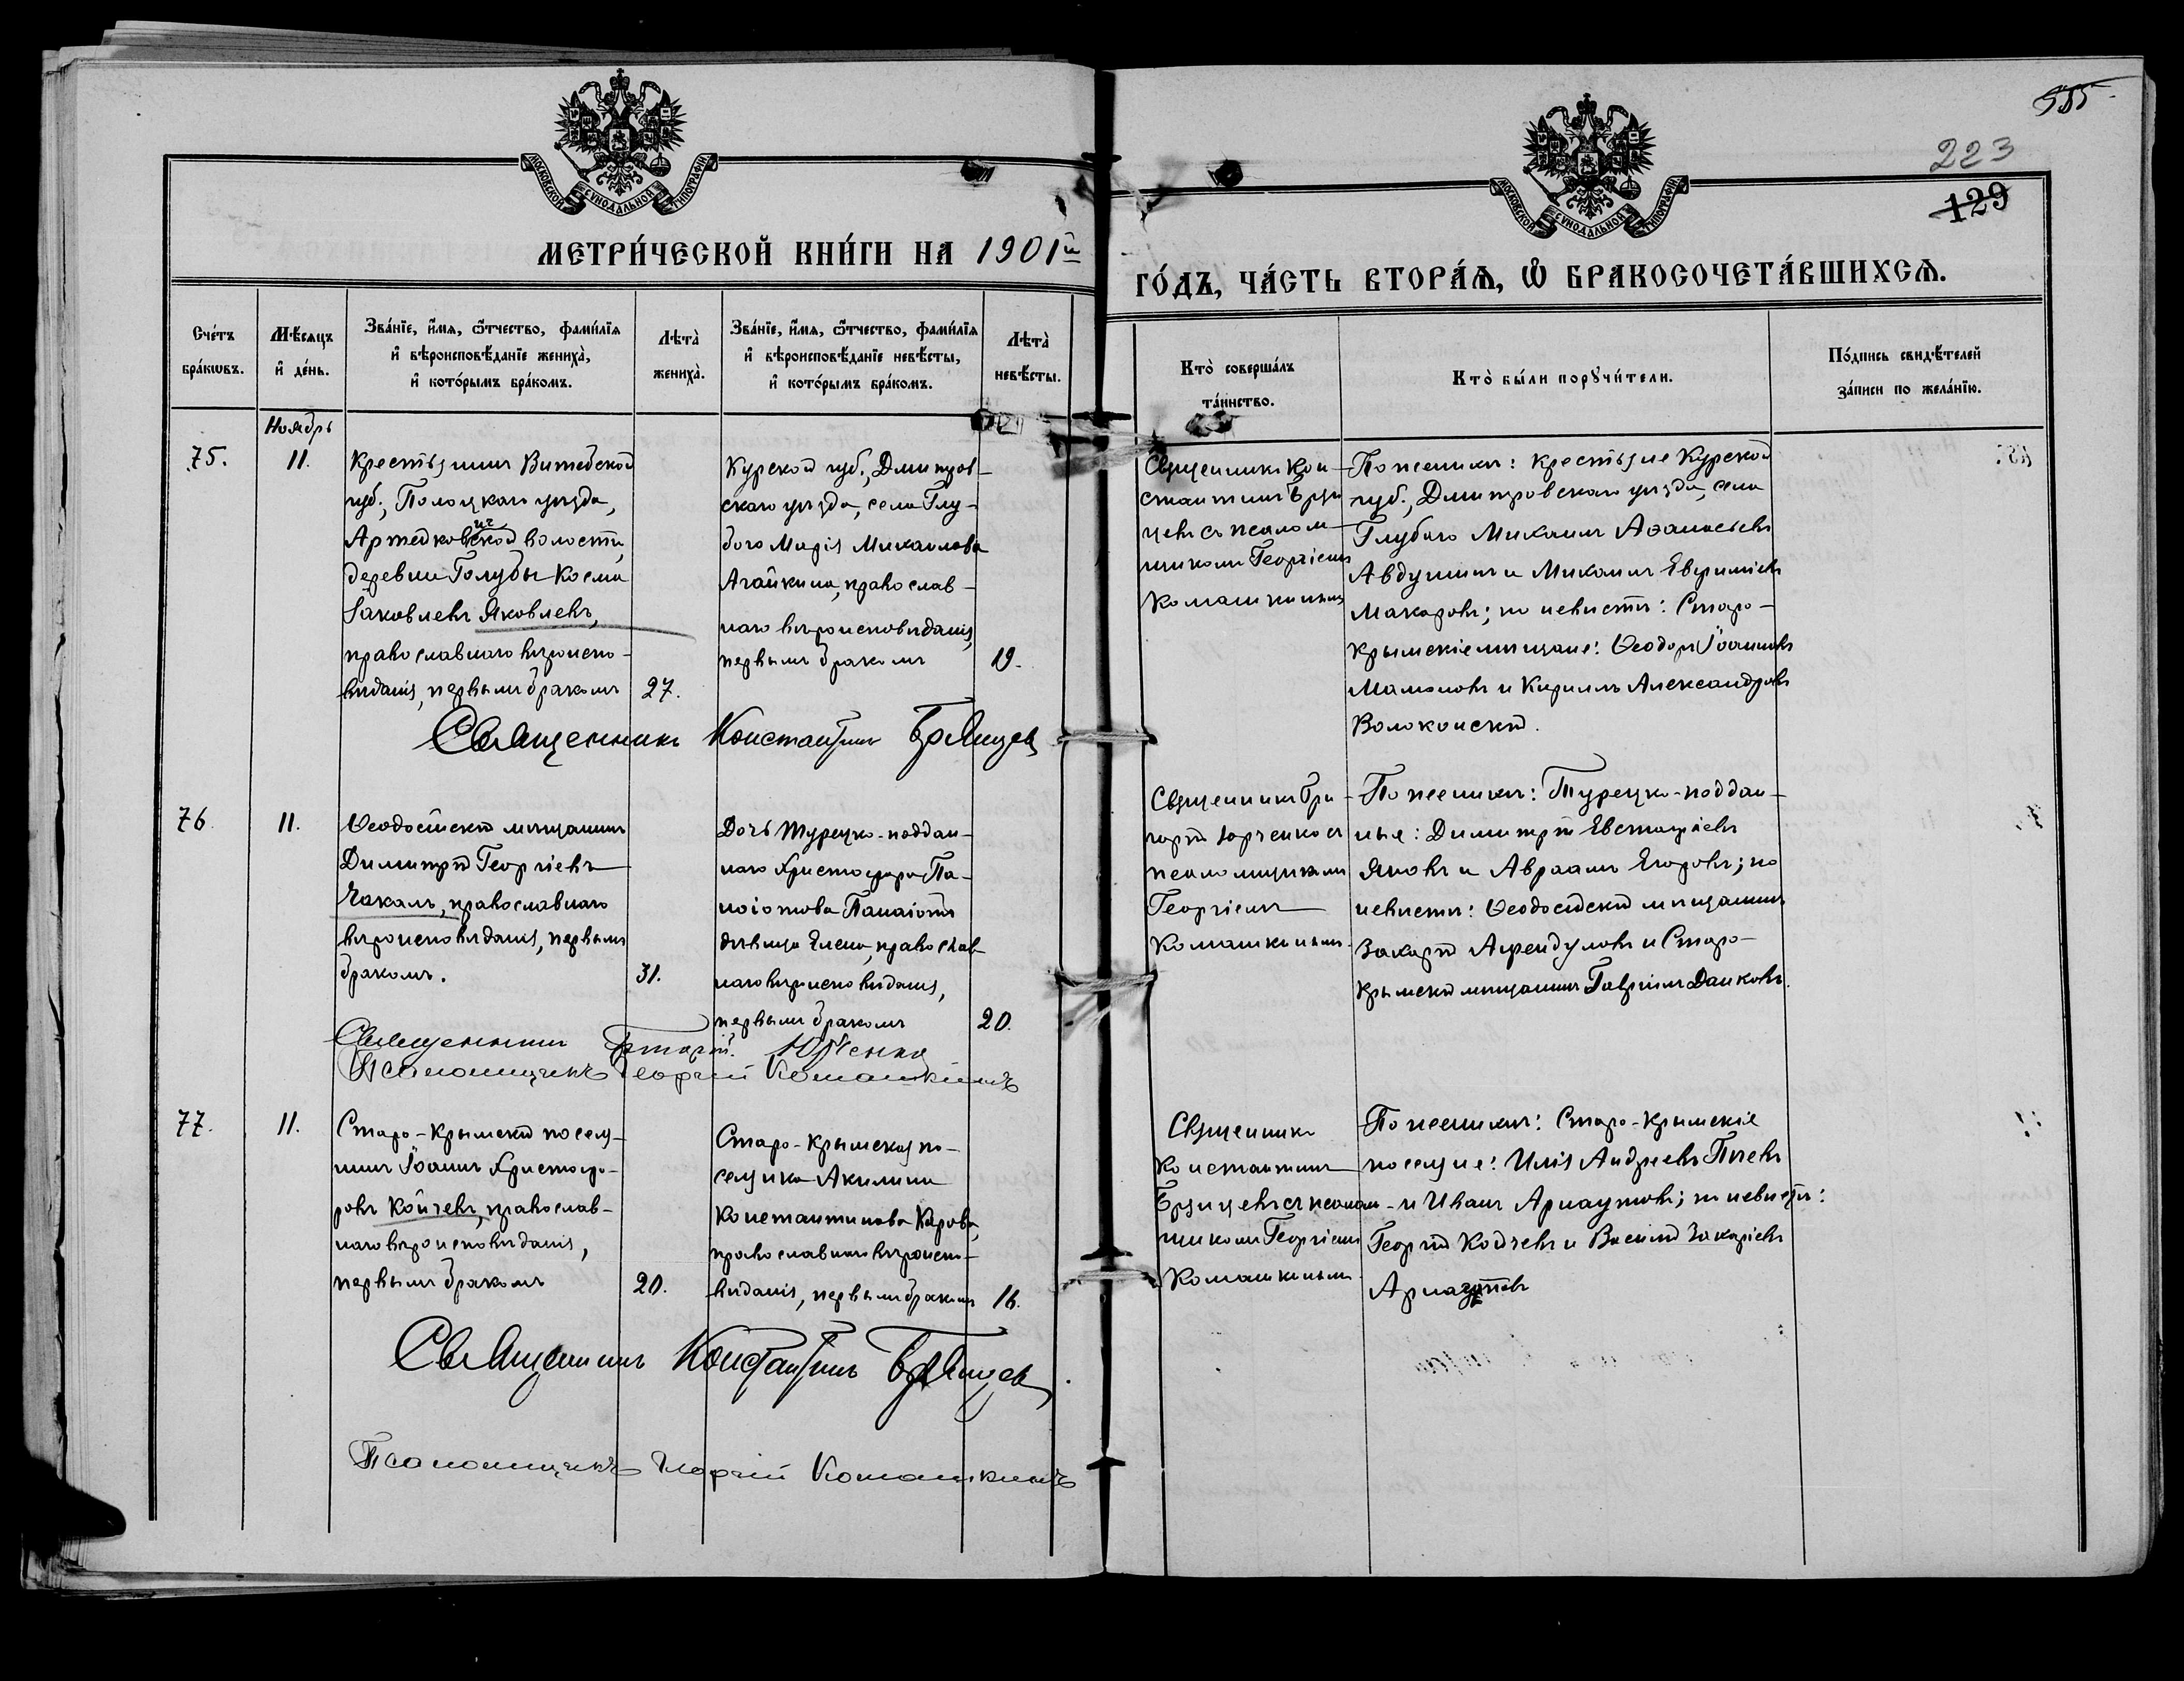 555
223
129
МОСКОВСКОЙ СѴНОДАЛЬНОЙ ТИПОГРАФІИ
МОСКОВСКОЙ СѴНОДАЛЬНОЙ ТИПОГРАФІИ
МЕТРИ́ЧЕСКОЙ КНИ́ГИ НА 1901й
ГО́ДЪ, ЧА́СТЬ ВТОРА́Я, Ѡ БРАКОСОЧЕТА́ВШИХСЯ.
Сче́тъ
бра́кѡвъ.
Мѣ́сяцъ
и҆ де́нь.
Зва́нїе, и҆́мя, ѻ҆́тчество, фами́лїя
и҆ вѣроисповѣ́данїе жениха̀,
и҆ кото́рымъ бра́комъ.
Лѣта̀
жениха̀.
Зва́нїе, и҆́мя, ѻ҆́тчество, фами́лїя
и҆ вѣроисповѣ́данїе невѣ́сты,
и҆ кото́рымъ бра́комъ.
Лѣта̀
невѣ́сты.
Кто̀ соверша́лъ
та́инство.
Кто̀ бы́ли порꙋчи́тели.
По́дпись свидѣ́телей
за́писи по жела́нїю.
Ноябрь
75.
11.
Крестьянинъ Витебской
губ., Полоцкаго уѣзда,
Артейковической волости,
деревни Голубы Косма
Іаковлевъ Яковлевъ,
православнаго вѣроиспо-
вѣданія, первымъ бракомъ
27.
Курской губ., Дмитров-
скаго уѣзда, села Глу-
бого Марія Михаилова
Агайкина, православ-
наго вѣроисповѣданія,
первымъ бракомъ
19.
Священникъ Кон-
стантинъ Брян
цевъ съ псалом-
щикомъ Георгіемъ
Комашкинымъ
По женихѣ: крестьяне Курской
губ., Дмитровскаго уѣзда, села
Глубого Михаилъ Аѳанасьевъ
Авдушинъ и Михаилъ Евфиміевъ
Макаровъ; по невѣстѣ: Старо-
Крымскіе мѣщане: Ѳеодоръ Іоанновъ
Мамоновъ и Кириллъ Александровъ
Волоконскій.
Священникъ Константинъ Брянцев
76.
11.
Ѳеодосійскій мѣщанинъ
Димитрій Георгіевъ
Чакалъ, православнаго
вѣроисповѣданія, первымъ
бракомъ.
31.
Дочь Турецко-поддан-
наго Христофора Па-
нојотова Панаіотъ
дѣвица Елена, православ-
наго вѣроисповѣданія,
первымъ бракомъ
20.
Священникъ Гри-
горій Юрченко съ
псаломщикомъ
Георгіемъ
Комашкинымъ.
По женихѣ: Турецко-поддан-
ные: Димитрій Евстафіевъ
Яновъ и Авраамъ Егоровъ; по
невѣстѣ: Ѳеодосійскій мѣщанинъ
Захарій Афендуловъ и Старо-
Крымскій мѣщанинъ Гавріилъ Данковъ.
Священникъ Григорій Юрченко
Псаломщикъ Георгій Комашкинъ
77.
11.
Старо-Крымскій поселя-
нинъ Іоаннъ Христофо-
ровъ Койчевъ, православ-
наго вѣроисповѣданія,
первымъ бракомъ
20.
Старо-Крымская по-
селянка Акилина
Константинова Карова,
православнаго вѣроиспо-
вѣданія, первымъ бракомъ
16.
Священникъ
Константинъ
Брянцевъ съ псалом-
щикомъ Георгіемъ
Комашкинымъ.
По женихѣ: Старо-Крымскіе
поселяне: Илія Андреевъ Пѣевъ
и Иванъ Арнаутовъ; по невѣстѣ:
Георгій Койчевъ и Василій Захаріевъ
Арнаутовъ
Священникъ Константинъ Брянцев
Псаломщикъ Георгій Комашкинъ